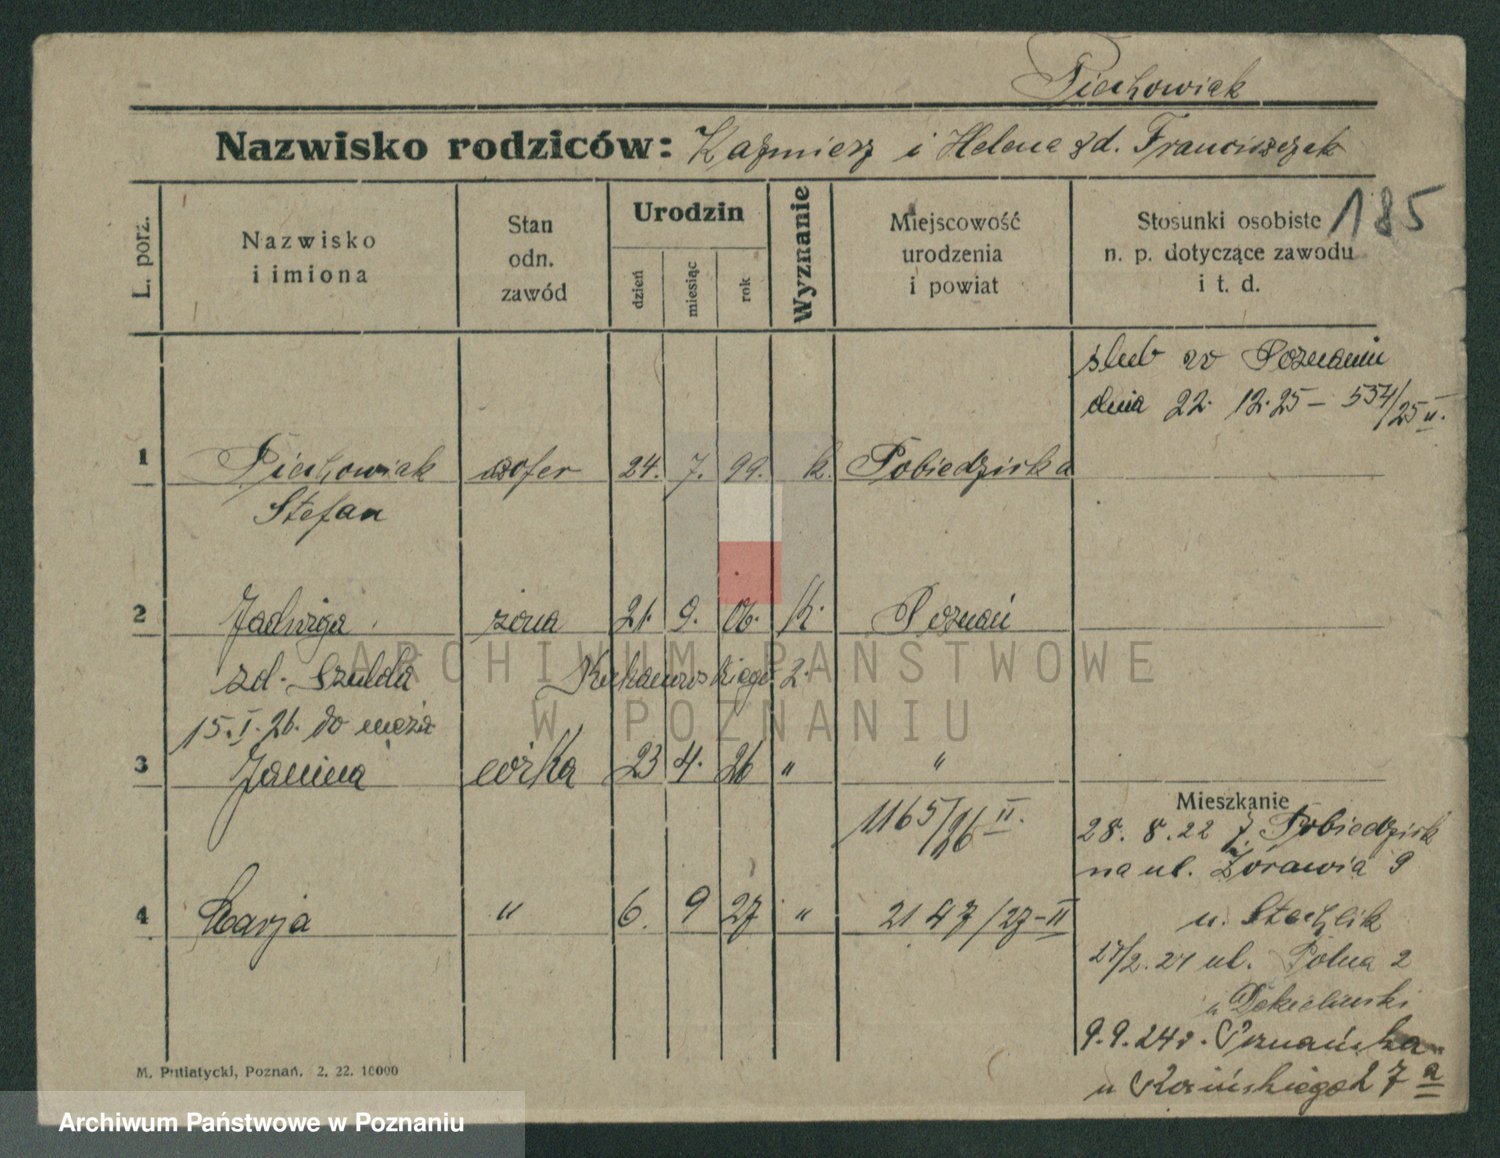 Piechowiak
Nazwisko rodziców: Kaźmierz i Helena zd. Franciszczak
185
L. porz.
Nazwisko i imiona
Stan odn. zawód
Urodzin
dzień
miesiąc
rok
Wyznanie
Miejscowość urodzenia i powiat
Stosunki osobiste n. p. dotyczące zawodu i t. d.
ślub w Poznaniu
dnia 22. 12. 25 – 554/25 II.
1 Piechowiak szofer 24. 7. 99. k. Pobiedziska
Stefan
2 Jadwiga żona 21. 9. 06. k. Poznań
zd. Szulda 2.
15. I. 26. do męża
3 Janina córka 23 4. 26 " "
1165/26 II.
4 Marja " 6. 9 27 " 2147/27–II
Mieszkanie
28. 8. 22 z Pobiedzisk
na ul. Żórawia 9
u. Stachlik
ul. Polna 2
u
9. 9. 24 r. Poznańska
u 27 a
M. Putiatycki, Poznań. 2. 22. 10000
ARCHIWUM PAŃSTWOWE
W POZNANIU
Archiwum Państwowe w Poznaniu